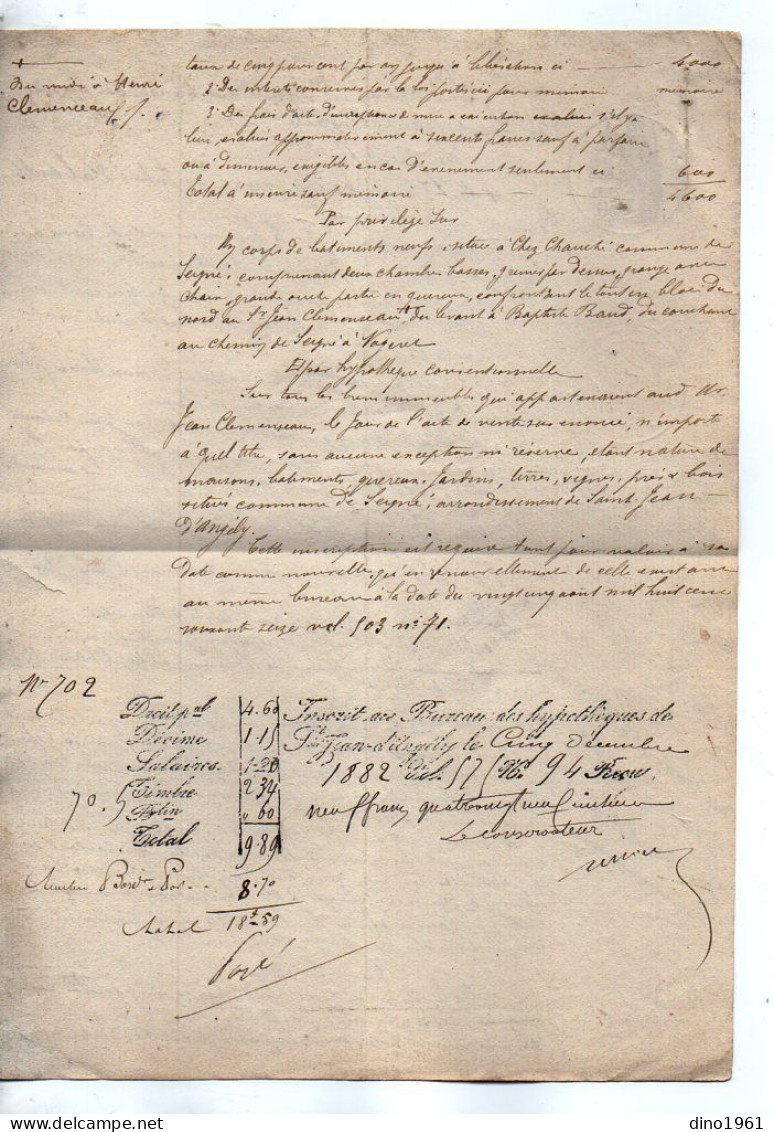 +
Du midi à Henri
Clemenceau
taux de cinq pour cent par an jusqu'à libération ci — 4000
2° Des intérêts conservés par la loi portés ici pour mémoire mémoire
3° Des frais d'acte, d'inscription & de mise à exécution s'il y a
lieu, évalués approximativement à six cents francs sauf à parfaire
ou à diminuer, exigibles en cas d'évènement seulement ci 600
Total à inscrire sauf mémoire 4600
Par privilège sur
Un corps de batiments neufs, situé à Chez Chauché commune de
Seigné, comprenant deux chambres basses, grenier par dessus, grange
chai, partie en quereux, confrontant le tout en bloc du
nord au Sr Jean Clemenceau, + du levant à Baptiste Baud, du couchant
au chemin de Seigné à
Et par hypothèque conventionnelle
Sur tous les biens immeubles qui appartenaient aud. Mr.
Jean Clemenseau, le jour de l'acte de vente sus énoncé, n'importe
à quel titre, sans aucune exception ni réserve, étant nature de
maisons, batiments, quereux, jardins, terres, vignes, prés & bois
situés commune de Seigné, arrondissement de Saint-Jean-
D'Angély.
Cette inscription est requise tant pour valoir à sa
date comme nouvelle, qu'en renouvellement de celle
au même bureau à la date du vingt cinq août mil huit cent
soixante seize vol. 503 n° 71.
N° 702
Droit pal 4.60
Décime 1.15
Salaires 1.20
Timbre 2.34
" 60
Total 9.89
70.5
8.70
Total 18f59
Payé
Inscrit au Bureau des hypothèques de
St Jean-d'Angély le Cinq Décembre
1882 Vol. 575 No. 94 Reçu
neuf francs quatre vingt neuf centimes
Le conservateur